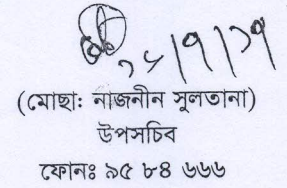 ১৮/৭/১৭
(মোছাঃ নাজনীন সুলতানা)
উপসচিব
ফোনঃ ৯৫ ৮৪ ৬৬৬